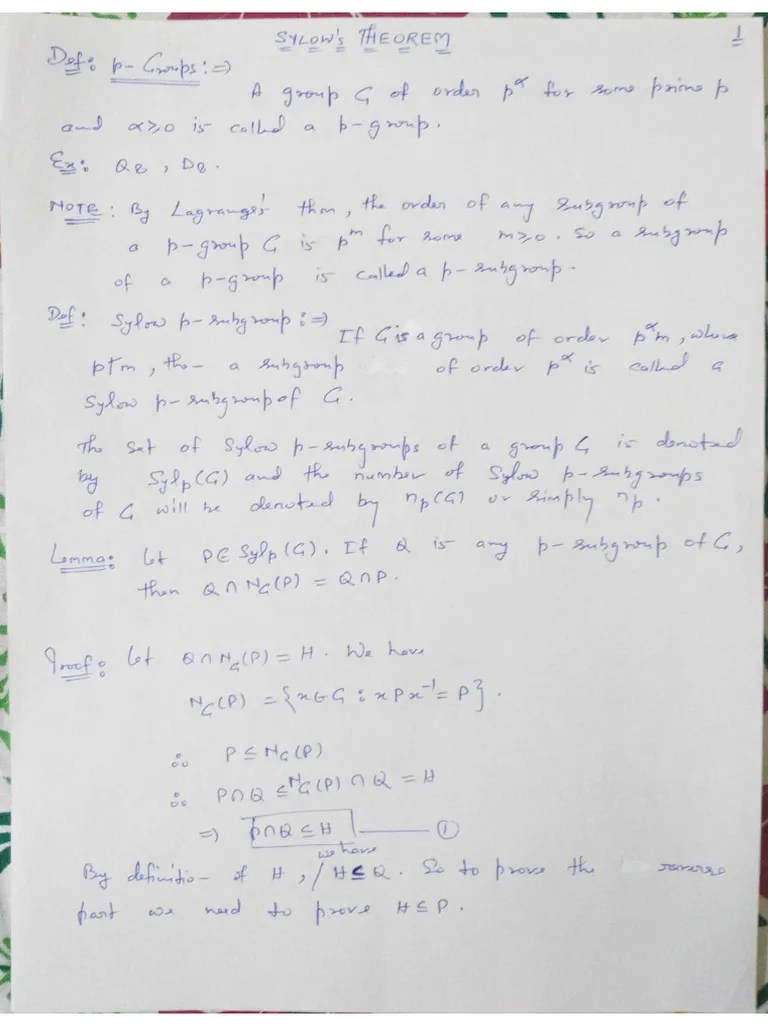 SYLOW'S THEOREM 1
Def: p-Groups: ⇒
A group G of order p^α for some prime p
and α≥0 is called a p-group.
Ex: Q8, D8.
NOTE: By Lagrange's thm, the order of any subgroup of
a p-group G is p^m for some m≥0. So a subgroup
of a p-group is called a p-subgroup.
Def: Sylow p-subgroup: ⇒
If G is a group of order p^α m, where
p∤m, then a subgroup of order p^α is called a
Sylow p-subgroup of G.
The set of Sylow p-subgroups of a group G is denoted
by Syl_p(G) and the number of Sylow p-subgroups
of G will be denoted by n_p(G) or simply n_p.
Lemma: Let P∈Syl_p(G). If Q is any p-subgroup of G,
then Q∩N_G(P) = Q∩P.
Proof: Let Q∩N_G(P) = H. We have
N_G(P) = {x∈G : xPx⁻¹ = P}.
∴ P ≤ N_G(P)
∴ P∩Q ≤ N_G(P) ∩ Q = H
⇒ P∩Q ≤ H — ①
we have
By definition of H, / H≤Q. So to prove the reverse
part we need to prove H≤P.